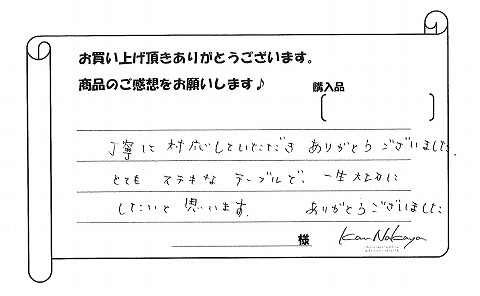 お買い上げ頂きありがとうございます。
商品のご感想をお願いします♪
購入品
丁寧に対応していただき ありがとうございました。
とても ステキな テーブルで、一生大切に
したいと思います。 ありがとうございました
様
Kan Nakaya